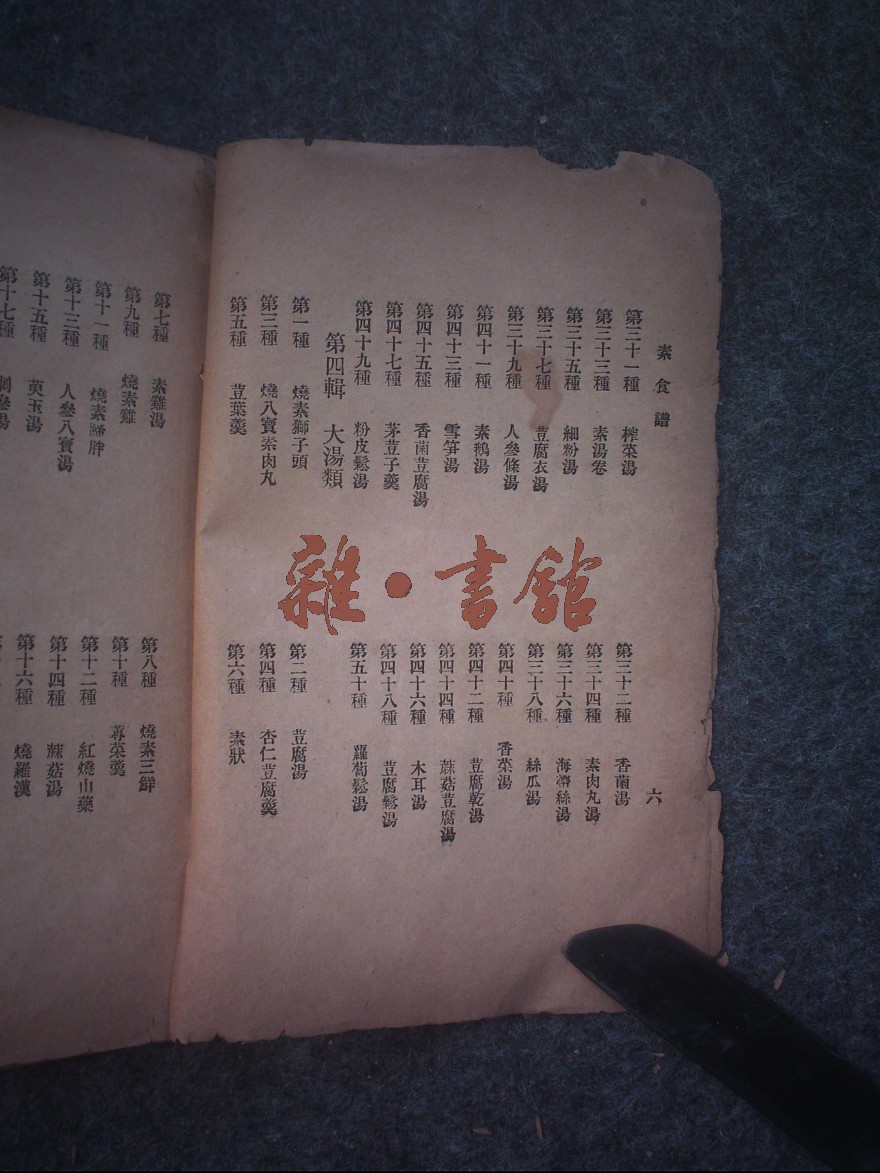 素食譜
六
第三十一種 榨菜湯
第三十二種 香菌湯
第三十三種 素湯卷
第三十四種 素肉丸湯
第三十五種 細粉湯
第三十六種 海帶絲湯
第三十七種 荳腐衣湯
第三十八種 絲瓜湯
第三十九種 人參條湯
第四十種 香菜湯
第四十一種 素鵝湯
第四十二種 荳腐乾湯
第四十三種 雪笋湯
第四十四種 蔴菇荳腐湯
第四十五種 香菌荳腐湯
第四十六種 木耳湯
第四十七種 茅荳子羹
第四十八種 荳腐鬆湯
第四十九種 粉皮鬆湯
第五十種 蘿蔔鬆湯
第四輯 大湯類
第一種 燒素獅子頭
第二種 荳腐湯
第三種 燒八寶素肉丸
第四種 杏仁荳腐羹
第五種 荳葉羹
第六種 素狀
第七種 素雞湯
第八種 燒素三鮮
第九種 燒素雞
第十種 蓴菜羹
第十一種 燒素蹄胖
第十二種 紅燒山藥
第十三種 人參八寶湯
第十四種 蔴菇湯
第十五種 萸玉湯
第十六種 燒羅漢
第十七種 刺參湯
雜·書館